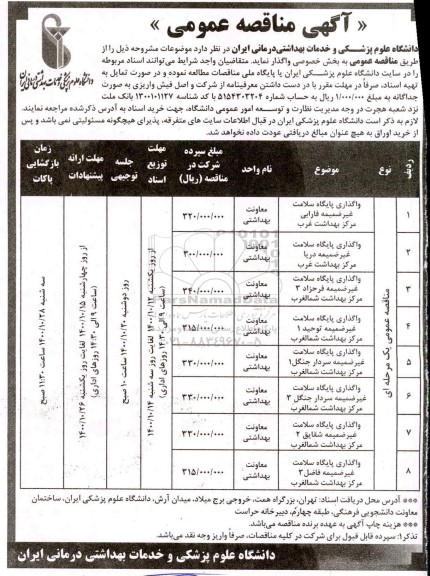 « آگهی مناقصه عمومی »
دانشگاه علوم پزشکی و خدمات بهداشتی درمانی ایران
دانشگاه علوم پزشکی و خدمات بهداشتی‌درمانی ایران در نظر دارد موضوعات مشروحه ذیل را از
طریق مناقصه عمومی به بخش خصوصی واگذار نماید. متقاضیان واجد شرایط می‌توانند اسناد مربوطه
را در سایت دانشگاه علوم پزشکی ایران یا پایگاه ملی مناقصات مطالعه نموده و در صورت تمایل به
تهیه اسناد، صرفاً در مهلت مقرر با در دست داشتن معرفینامه از شرکت و اصل فیش واریزی به صورت
جداگانه به مبلغ ۱/۰۰۰/۰۰۰ ریال به حساب شماره ۵۱۵۴۳۰۳۲۰۴ با کد شناسه ۱۳۰۰۱۰۱۱۲۷ بانک ملت
نزد شعبه هجرت در وجه مدیریت نظارت و توسعه امور عمومی دانشگاه، جهت خرید اسناد به آدرس ذکرشده مراجعه نمایند.
لازم به ذکر است دانشگاه علوم پزشکی ایران در قبال اطلاعات سایت های متفرقه، پذیرای هیچگونه مسئولیتی نمی باشد و پس
از خرید اوراق به هیچ عنوان مبالغ دریافتی عودت داده نخواهد شد.
ردیف موضوع نام واحد مبلغ سپرده شرکت در مناقصه (ریال) مهلت توزیع اسناد جلسه توجیهی مهلت ارائه پیشنهادات زمان بازگشایی پاکات
۱ واگذاری پایگاه سلامت غیرضمیمه فارابی مرکز بهداشت غرب معاونت بهداشتی ۳۲۰/۰۰۰/۰۰۰
۲ واگذاری پایگاه سلامت غیرضمیمه دریا مرکز بهداشت غرب معاونت بهداشتی ۳۰۰/۰۰۰/۰۰۰
۳ واگذاری پایگاه سلامت غیرضمیمه فرحزاد ۳ مرکز بهداشت شمالغرب معاونت بهداشتی ۳۴۰/۰۰۰/۰۰۰
۴ واگذاری پایگاه سلامت غیرضمیمه توحید ۱ مرکز بهداشت شمالغرب معاونت بهداشتی ۳۱۵/۰۰۰/۰۰۰
۵ واگذاری پایگاه سلامت غیرضمیمه سردار جنگل۱ مرکز بهداشت شمالغرب معاونت بهداشتی ۳۳۰/۰۰۰/۰۰۰
۶ واگذاری پایگاه سلامت غیرضمیمه سردار جنگل ۳ مرکز بهداشت شمالغرب معاونت بهداشتی ۳۳۰/۰۰۰/۰۰۰
۷ واگذاری پایگاه سلامت غیرضمیمه شقایق ۲ مرکز بهداشت شمالغرب معاونت بهداشتی ۳۳۰/۰۰۰/۰۰۰
۸ واگذاری پایگاه سلامت غیرضمیمه فاضل۳ مرکز بهداشت شمالغرب معاونت بهداشتی ۳۱۵/۰۰۰/۰۰۰
مناقصه عمومی یک مرحله ای
از روز یکشنبه ۱۴۰۰/۱۰/۱۲ لغایت روز سه شنبه ۱۴۰۰/۱۰/۱۴
(ساعت ۹ الی ۱۴:۳۰ روزهای اداری)
روز دوشنبه ۱۴۰۰/۱۰/۲۰ ساعت ۱۰ صبح
از روز چهارشنبه ۱۴۰۰/۱۰/۱۵ لغایت روز یکشنبه ۱۴۰۰/۱۰/۲۶
(ساعت ۹ الی ۱۴:۳۰ روزهای اداری)
سه شنبه ۱۴۰۰/۱۰/۲۸ ساعت ۱۱:۳۰ صبح
*** آدرس محل دریافت اسناد: تهران، بزرگراه همت، خروجی برج میلاد، میدان آرش، دانشگاه علوم پزشکی ایران، ساختمان
معاونت دانشجویی فرهنگی، طبقه چهارم، دبیرخانه حراست
*** هزینه چاپ آگهی به عهده برنده مناقصه می‌باشد.
تذکر۱: سپرده قابل قبول برای شرکت در کلیه مناقصات، صرفاً واریز وجه نقد می‌باشد.
دانشگاه علوم پزشکی و خدمات بهداشتی درمانی ایران